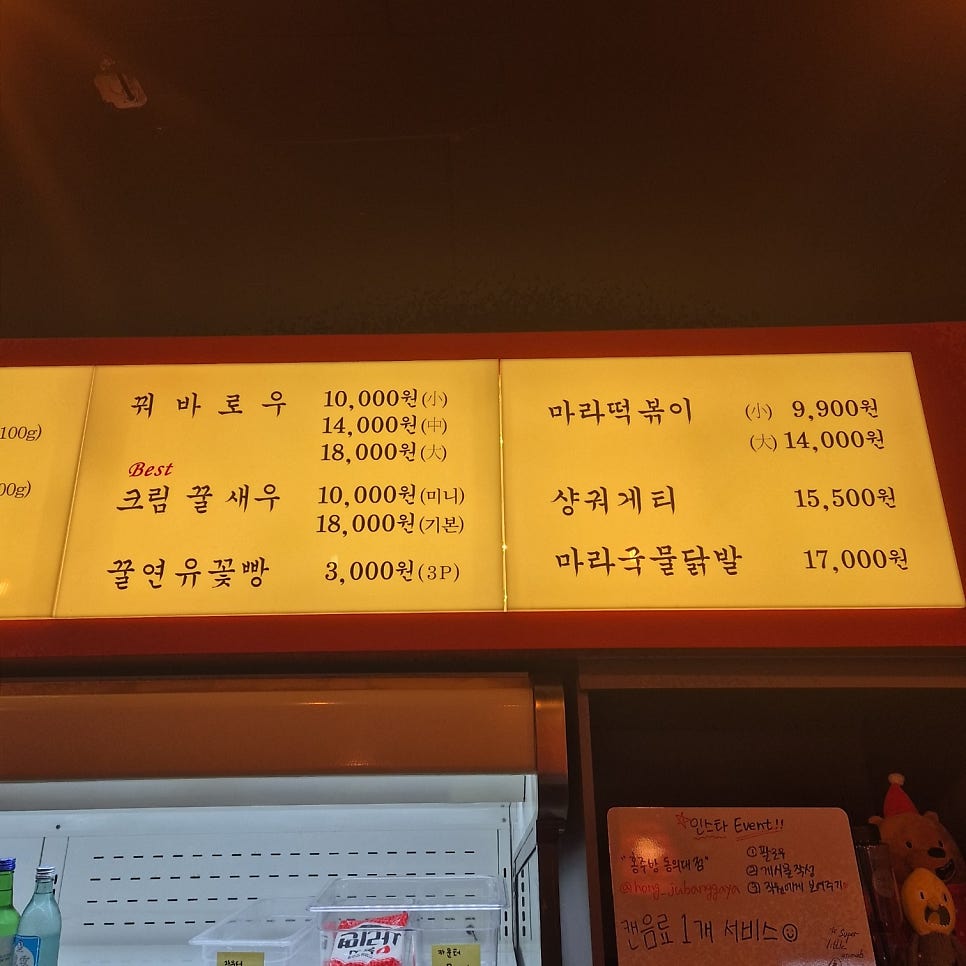 100g)
00g)
꿔바로우 10,000원(小)
14,000원(中)
18,000원(大)
Best
크림 꿀새우 10,000원(미니)
18,000원(기본)
꿀연유꽃빵 3,000원(3P)
마라떡볶이 (小) 9,900원
(大) 14,000원
샹궈게티 15,500원
마라국물닭발 17,000원
인스타 Event!!
"홍주방 동의대점"
@hong_jubanggaya
① 팔로우
② 게시물 작성
③ 직원에게 보여주기
캔음료 1개 서비스
Super
little
animals
카운터
카운터